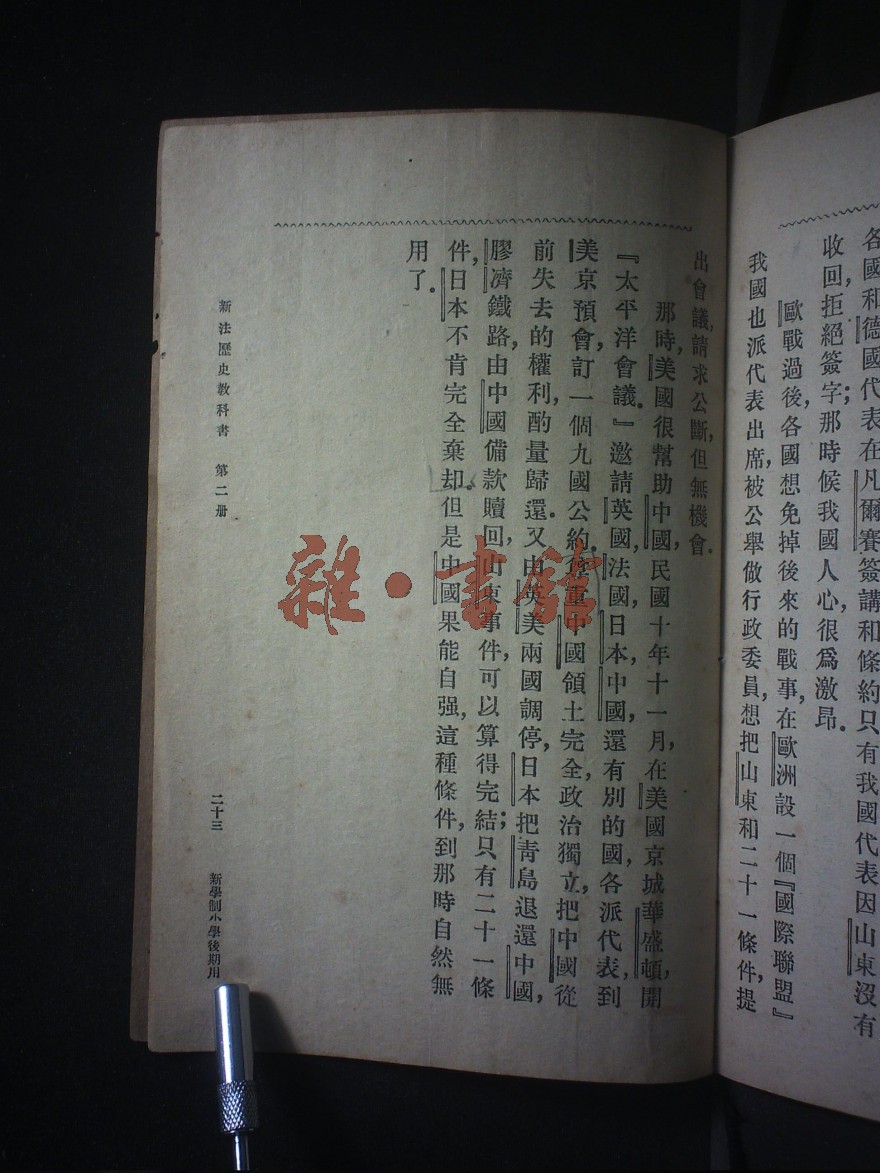 各國和德國代表在凡爾賽簽講和條約只有我國代表因山東沒有
收回，拒絕簽字；那時候我國人心，很爲激昂．
歐戰過後，各國想免掉後來的戰事，在歐洲設一個『國際聯盟』
我國也派代表出席，被公舉做行政委員，想把山東和二十一條件，提
出會議，請求公斷，但無機會．
那時，美國很幫助中國，民國十年十一月，在美國京城華盛頓，開
『太平洋會議．』邀請英國，法國，日本，中國，還有別的國，各派代表，到
美京預會，訂一個九國公約．尊重中國領土完全，政治獨立，把中國從
前失去的權利，酌量歸還．又由英美兩國調停，日本把靑島退還中國，
膠濟鐵路，由中國備款贖回，山東事件，可以算得完結；只有二十一條
件，日本不肯完全棄却．但是中國果能自强，這種條件，到那時自然無
用了．
新法歷史敎科書　第二册
二十三
新學制小學後期用
雜·書館